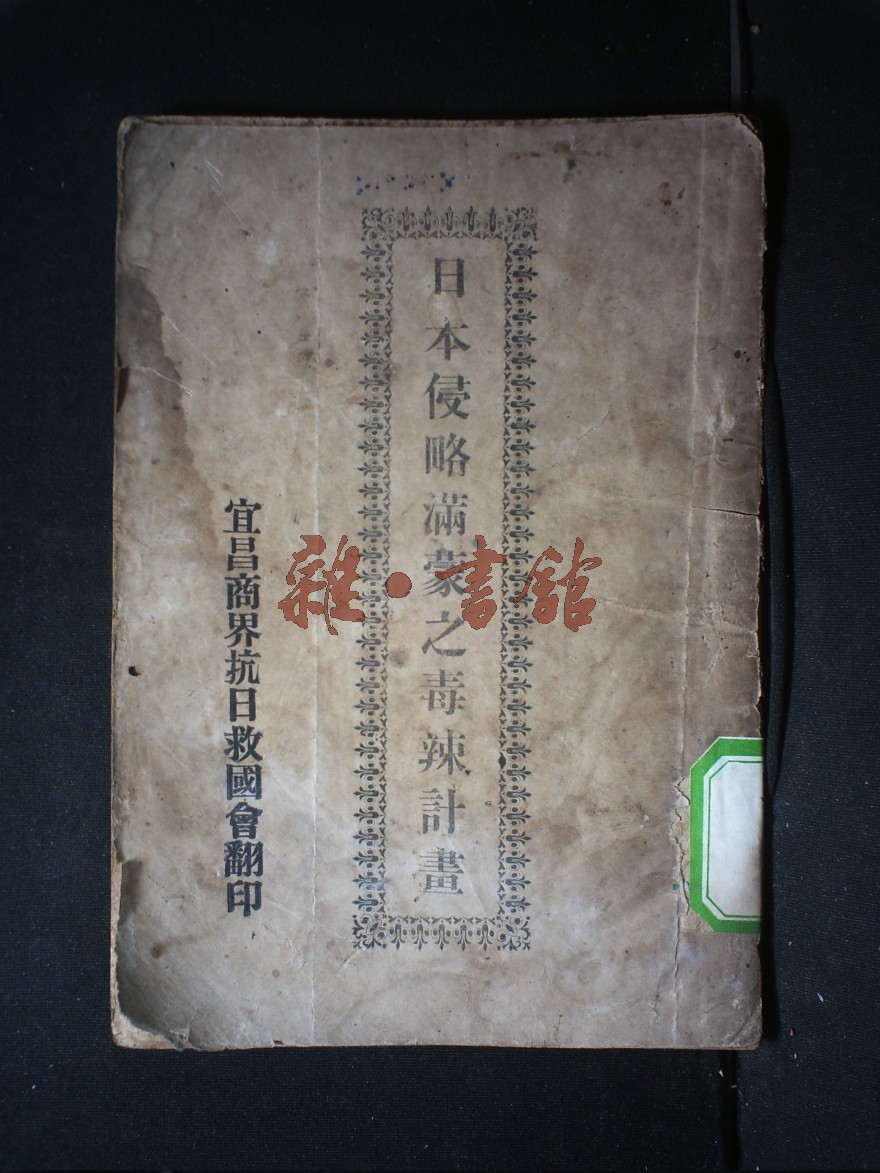 日本侵略滿蒙之毒辣計畫
宜昌商界抗日救國會翻印
雜·書館